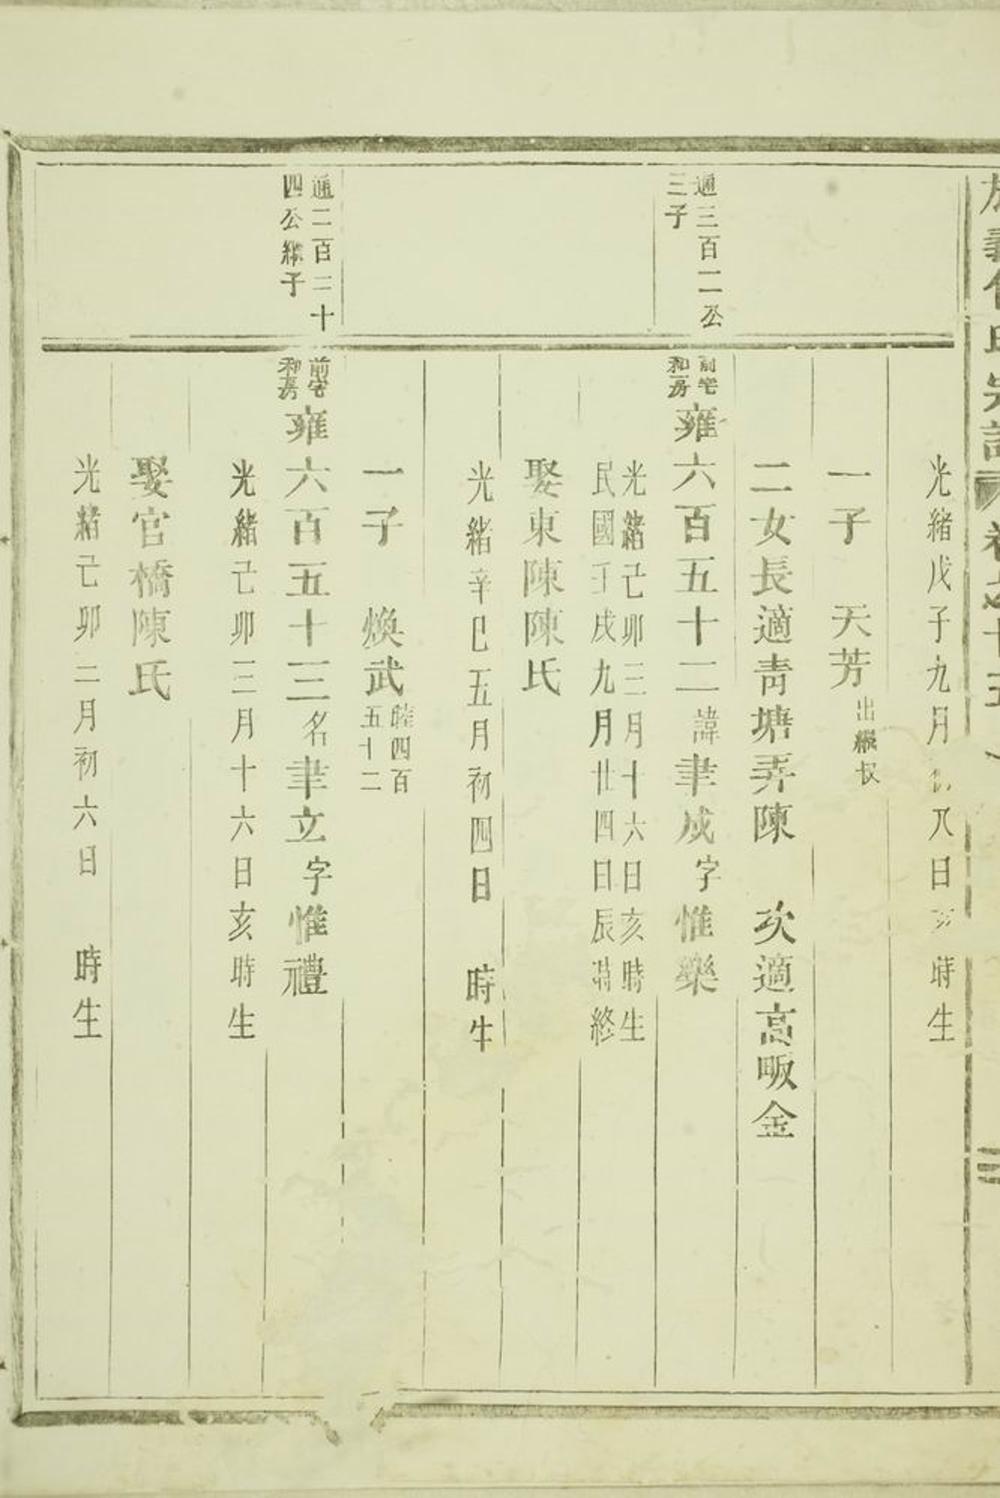 光緒戊子九月初八日亥時生
一子 天芳出繼叔
二女長適青塘弄陳 次適高畈金
通三百二公
三子
前宅
和房
雍六百五十二諱聿成字惟樂
光緒己卯三月十六日亥時生
民國壬戌九月廿四日辰時終
娶東陳陳氏
光緒辛巳五月初四日 時生
一子 煥武睦四百
五十二
通二百二十
四公繼子
前宅
和房
雍六百五十三名聿立字惟禮
光緒己卯三月十六日亥時生
娶官橋陳氏
光緒己卯二月初六日 時生